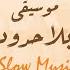 موسيقى
بلا حدود
Slow Music